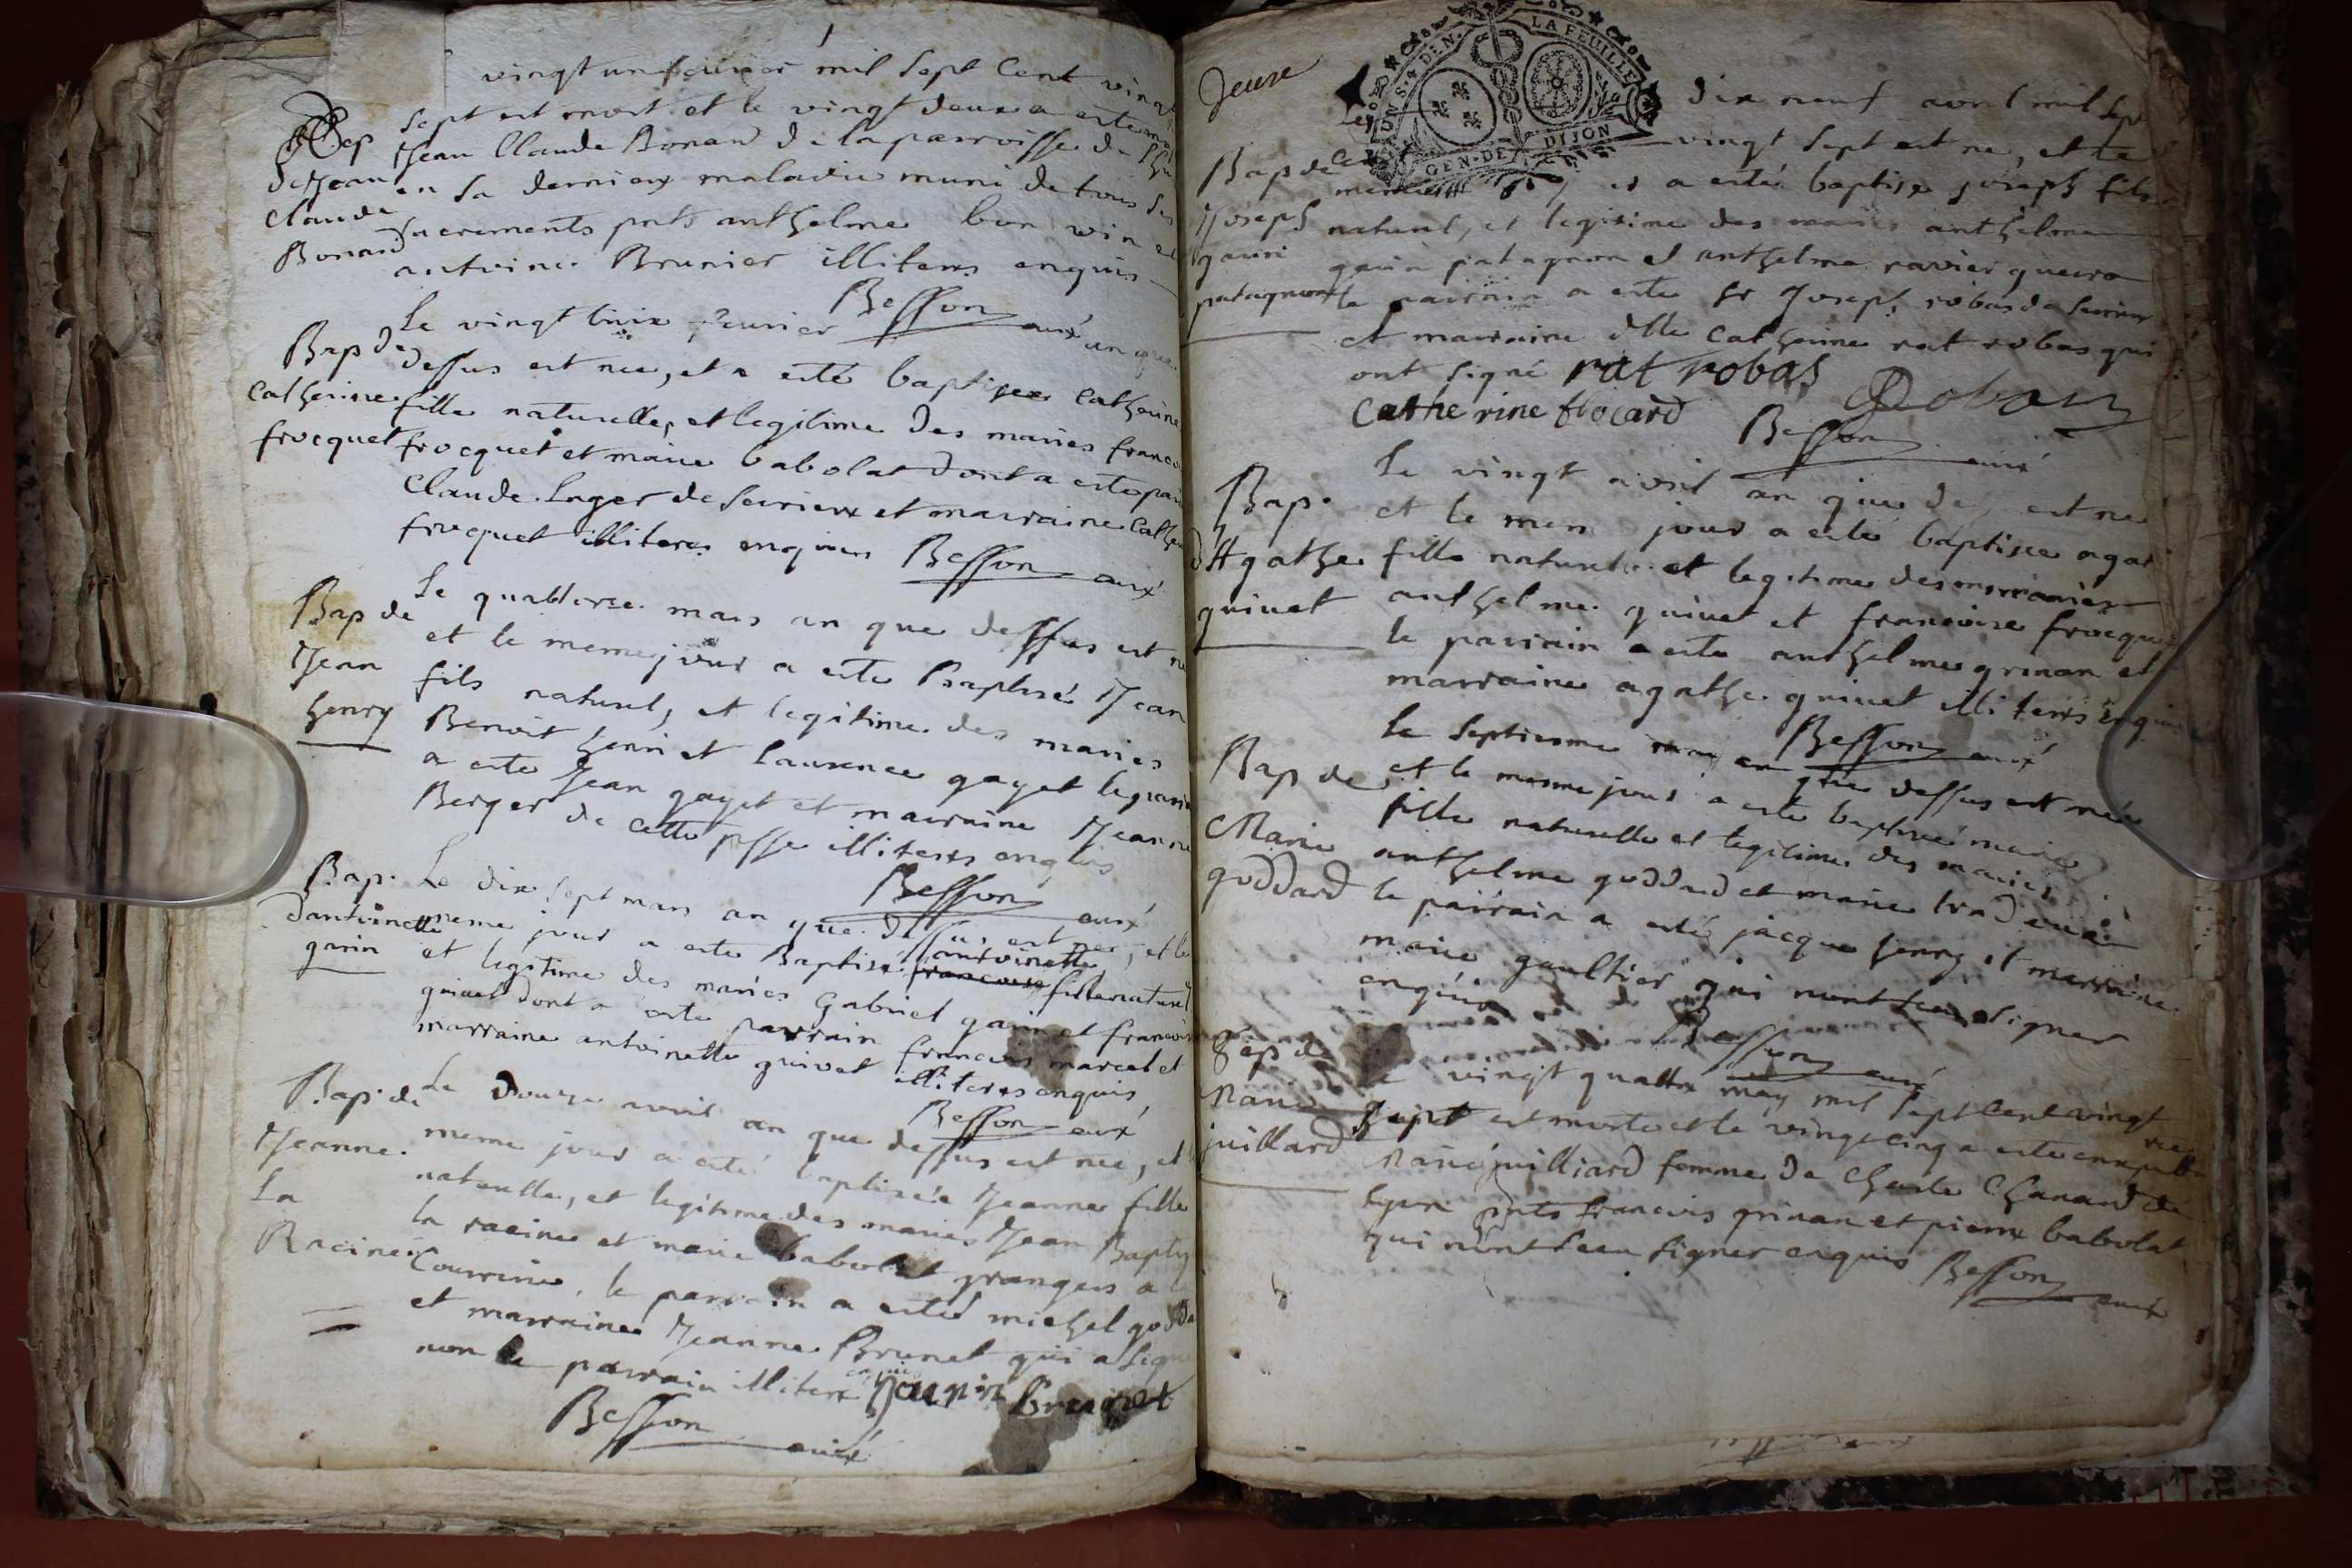 vingt un feuvrier mil sept Cent vingt
sept est mort et le vingt deux a este
Sep Jean Claude Bonard de la parroisse de
de Jean en sa derniere maladie muni de tous ses
Claude sacrements pnts anthelme bon vin et
Bonard antoine Brunier illiteres enquis
Besson curé
Le vingt trois feuvrier an que
Bap de dessus est nee, et a esté baptisee Catherine
Catherine fille naturelle, et legitime des maries francois
frocquet frocquet et marie babolat dont a este
Claude Lager de serrieux et marraine
frocquet illiteres enquis Besson curé
Le quatorze mars an que dessus est né
Bap de et le meme jour a este Baptisé Jean
Jean fils naturel, et legitime des maries
henry Benoit henri et Laurence gayet le
a este Jean gayet et marraine Jeanne
Berger de cette psse illiteres enquis
Besson curé
Bap. Le dix sept mars an que dessus est nee, et le
d'antoinette meme jour a este Baptisé antoinette fille
garin et legitime des maries Gabriel garin et francoise
guivet dont a este parrain francois marcel et
marraine antoinette guivet illiteres enquis
Besson curé
Bap. de Le douze avril an que dessus est nee, et
Jeanne meme jour a esté baptisée Jeanne fille
La naturelle, et legitime des maries Jean
Racine la racine et marie babolat grangers a
le parrain a esté michel
et marraine Jeanne Brunet qui a signé
non le parrain illitere enquis
Besson curé
Deuxe
LA FEUILLE
GEN. DE DIJON
Le dix neuf avril mil sept
Bap de cent vingt sept est né, et le
a esté baptisé joseph fils
Joseph naturel, et legitime des maries anthelme
garin garin patagnon et anthelme
patagnon le parrain a este sr Joseph robas de
et marraine dlle Catherine rat robas qui
ont signé rat robas
Catherine Robas
Besson curé
Le vingt avril an que des est né
Bap. et le mem jour a esté baptisee
d'Agathe fille naturelle et legitime des maries
guivet anthelme guivet et francoise frocquet
le parrain a este anthelme grinan et
marraine agathe guivet illiteres enquis
Besson curé
Le septiesme may an que dessus est née
Bap de et le mesme jour a este baptisée marie
Marie fille naturelle et legitime des maries
goddard anthelme goddard et marie
le parrain a esté jacque henry et marraine
marie gaultier qui nont sceu signer
enquis
Besson curé
Sep de Le vingt quattre may mil sept cent vingt
Marie sept est morte et le vingt cinq a este
juillard Marie juilliard femme de Charle Chanard de
pnts francois grinan et pierre babolat
qui nont sceu signer enquis Besson curé